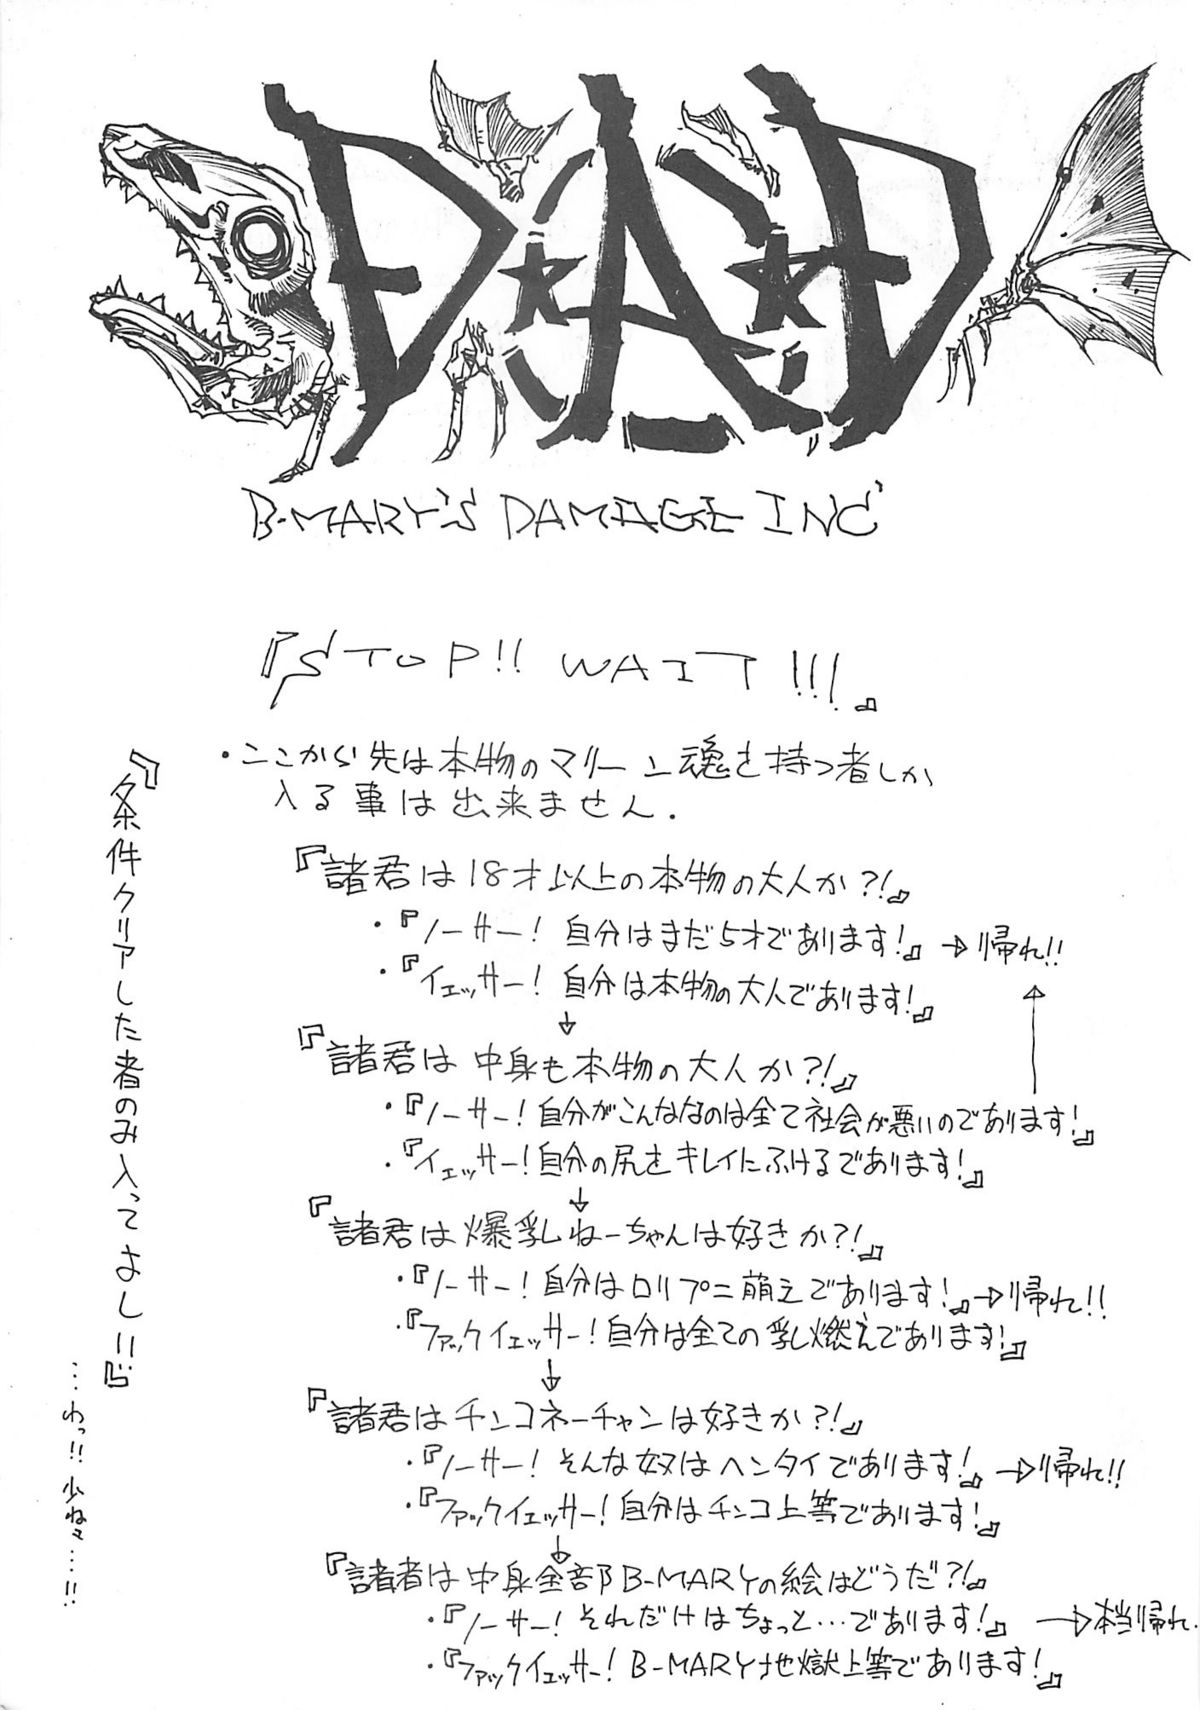 D★A★D
B-MARY'S DAMAGE INC
『STOP!! WAIT!!!』
・ここから先は本物のマリーン魂を持つ者しか
入る事は出来ません.
『諸君は18才以上の本物の大人か?!』
・『ノーサー! 自分はまだ5才であります!』→帰れ!!
・『イエッサー! 自分は本物の大人であります!』
↓
『諸君は中身も本物の大人か?!』
・『ノーサー!自分がこんななのは全て社会が悪いのであります!』
・『イェッサー!自分の尻をキレイにふけるであります!』
↓
『諸君は爆乳ねーちゃんは好きか?!』
・『ノーサー! 自分はロリプニ萌えであります!』→帰れ!!
・『ファックイェッサー!自分は全ての乳燃えであります!』
↓
『諸君はチンコネーチャンは好きか?!』
・『ノーサー! そんな奴はヘンタイであります!』→帰れ!!
・『ファックイェッサー!自分はチンコ上等であります!』
↓
『諸者は中身全部B-MARYの絵はどうだ?!』
・『ノーサー! それだけはちょっと…であります!』→本当帰れ.
・『ファックイェッサー! B-MARY地獄上等であります!』
『条件クリアした者のみ入ってよし!!』
…わっ!! 少ねェ…!!